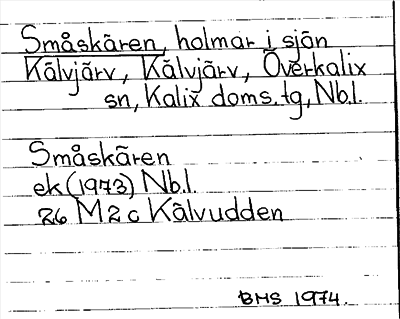 Småskären, holmar i sjön
Kälvjärv, Kälvjärv, Överkalix
sn, Kalix doms. tg, Nb.l.
Småskären
ek (1973) Nb.l.
26 M 2 c Kälvudden
BMS 1974.